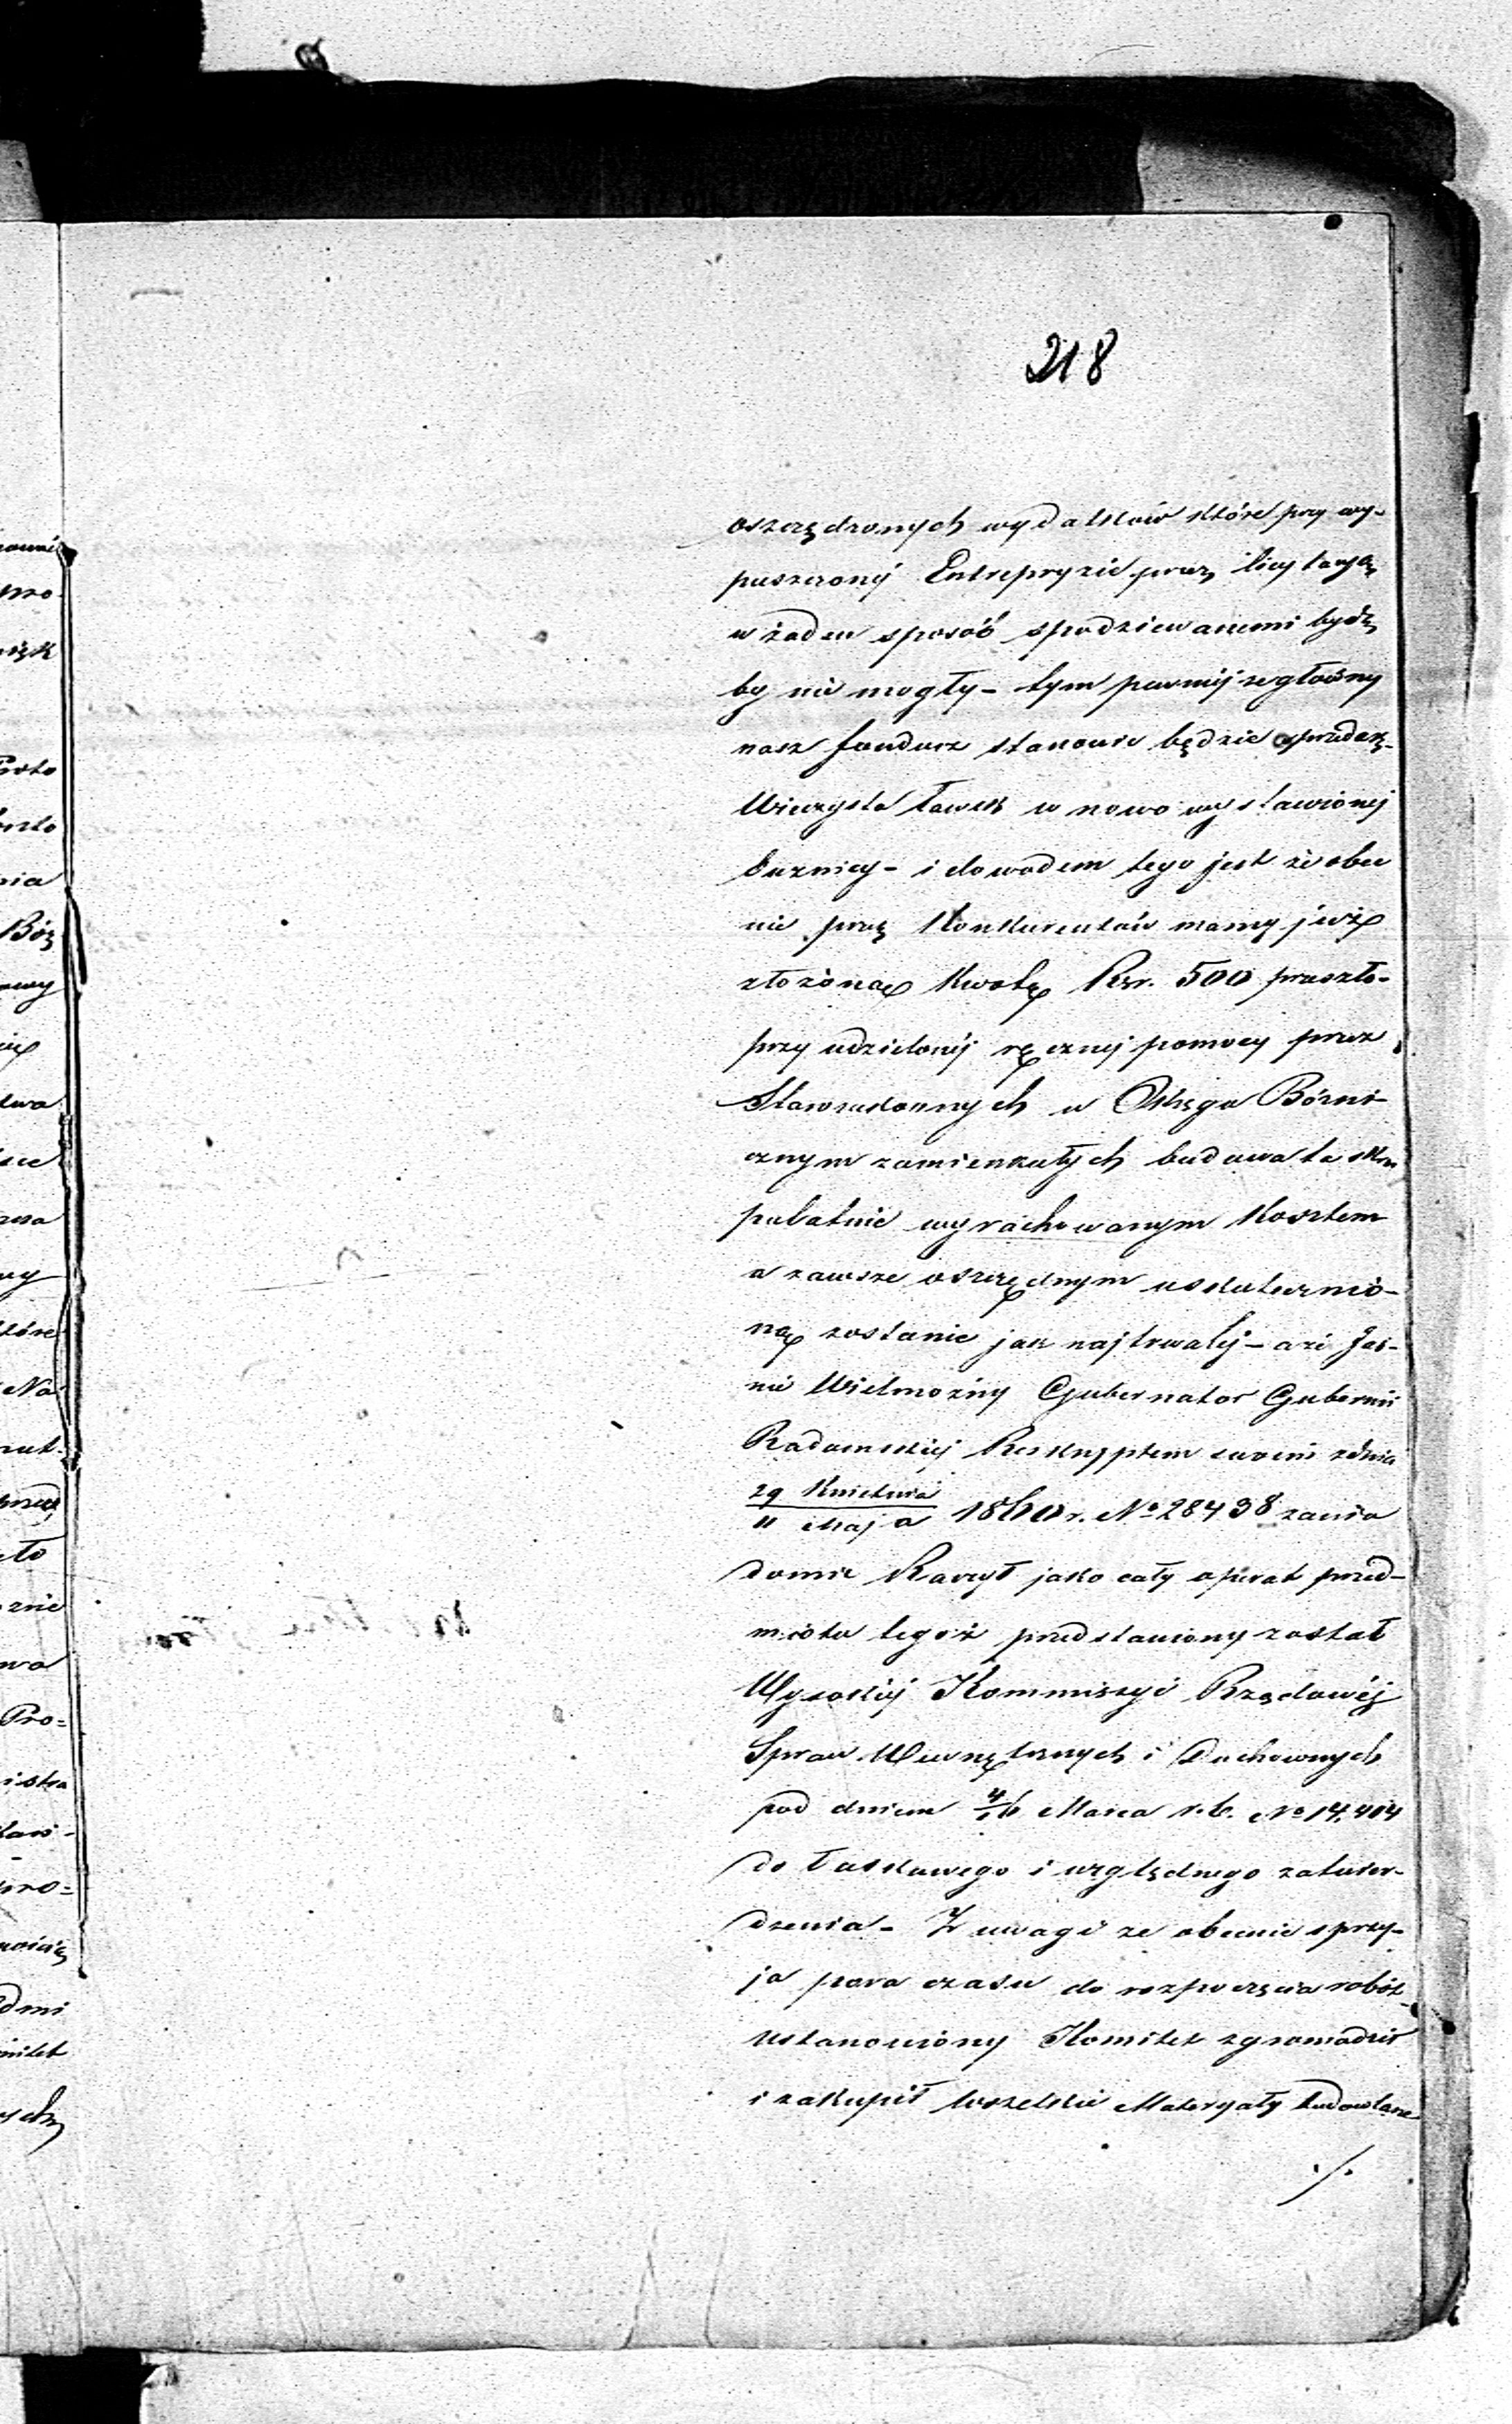 218
oszczędzonych wydatków które przy wy-
puszczonej Entrepryzie przez licytacyą
w żaden sposób spodziewanemi bydź
by nie mogły - tym pewniej ze główny
nasz fundusz stanowić będzie sprzedaż
Wieczysta Ławek w nowo wystawionej
bużnicy - i dowodem tego jest że obec
nie przez Konkurentów mamy już
złożoną Kwotę Rsr. 500 przeszło -
przy udzielonej ręcznej pomocy przez
Starozakonnych w Okręgu Bóżni-
cznym zamieszkałych budowa ta skru
pulatnie wyrachowanym Kosztem
a zawsze oszczędnym uskutecznio-
ną zostanie jak najtrwalej - a że Jaś-
nie Wielmożny Gubernator Gubernii
Radomskiej Reskryptem swoim z dnia
29 Kwietnia / 11 Maja 1860 r. No 28438 zawia
domić Raczył jako cały operat przed-
miotu tegoż przedstawiony został
Wysokiej Kommissyi Rządowéj
Spraw Wewnętrznych i Duchownych
pod dniem 4/16 Marca r. b. No 14,414
do Łaskawego i względnego zatwier-
dzenia - Z uwagi ze obecnie sprzy-
ja pora czasu do rozpoczęcia robót
ustanowiony Komitet zgromadził
i zakupił wszelkie Materyały budowlane
./.